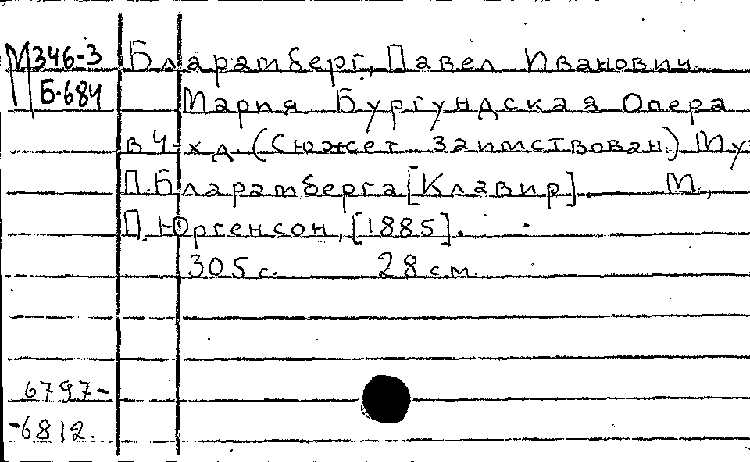 М346-3 Бларамберг, Павел Иванович.
Б-684 Мария Бургундская Опера
в 4-х д. (Сюжет заимствован.) Му
П. Бларамберга [Клавир]. М.,
П. Юргенсон, [1885].
305 с. 28 см.
6797-
-6812.